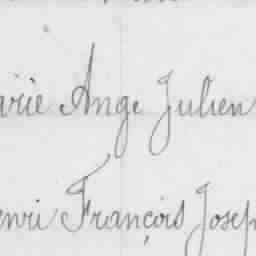 arie Ange Julien
enri François Josep